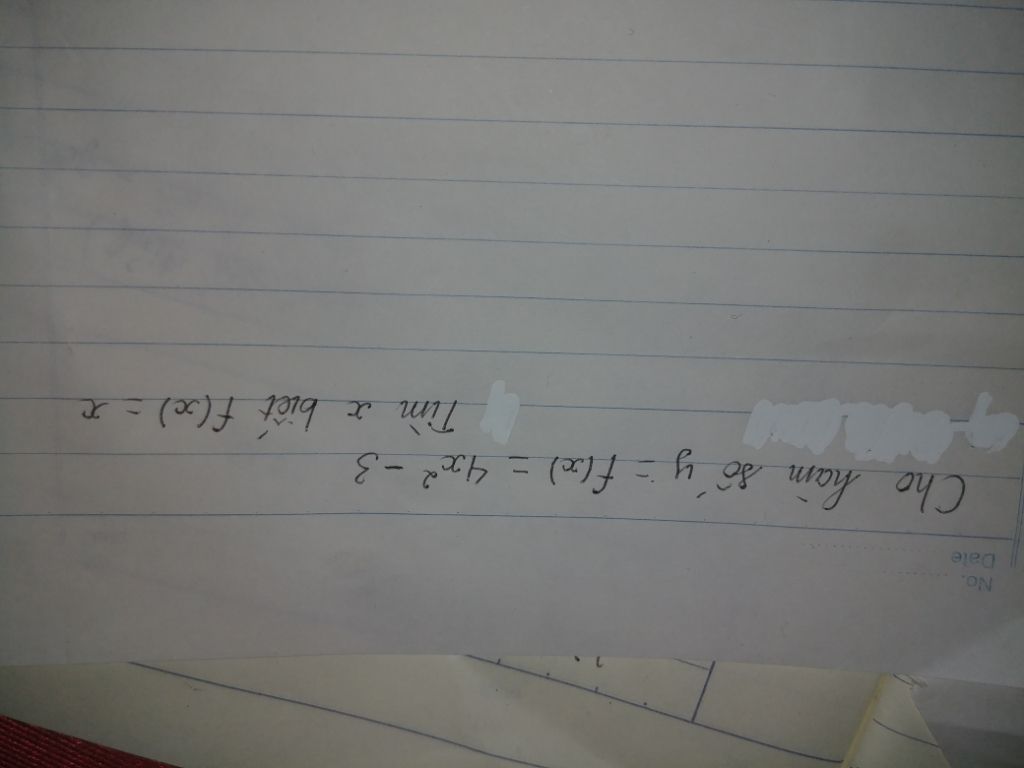 No.
Date
Cho hàm số y = f(x) = 4x² - 3
Tìm x biết f(x) = x